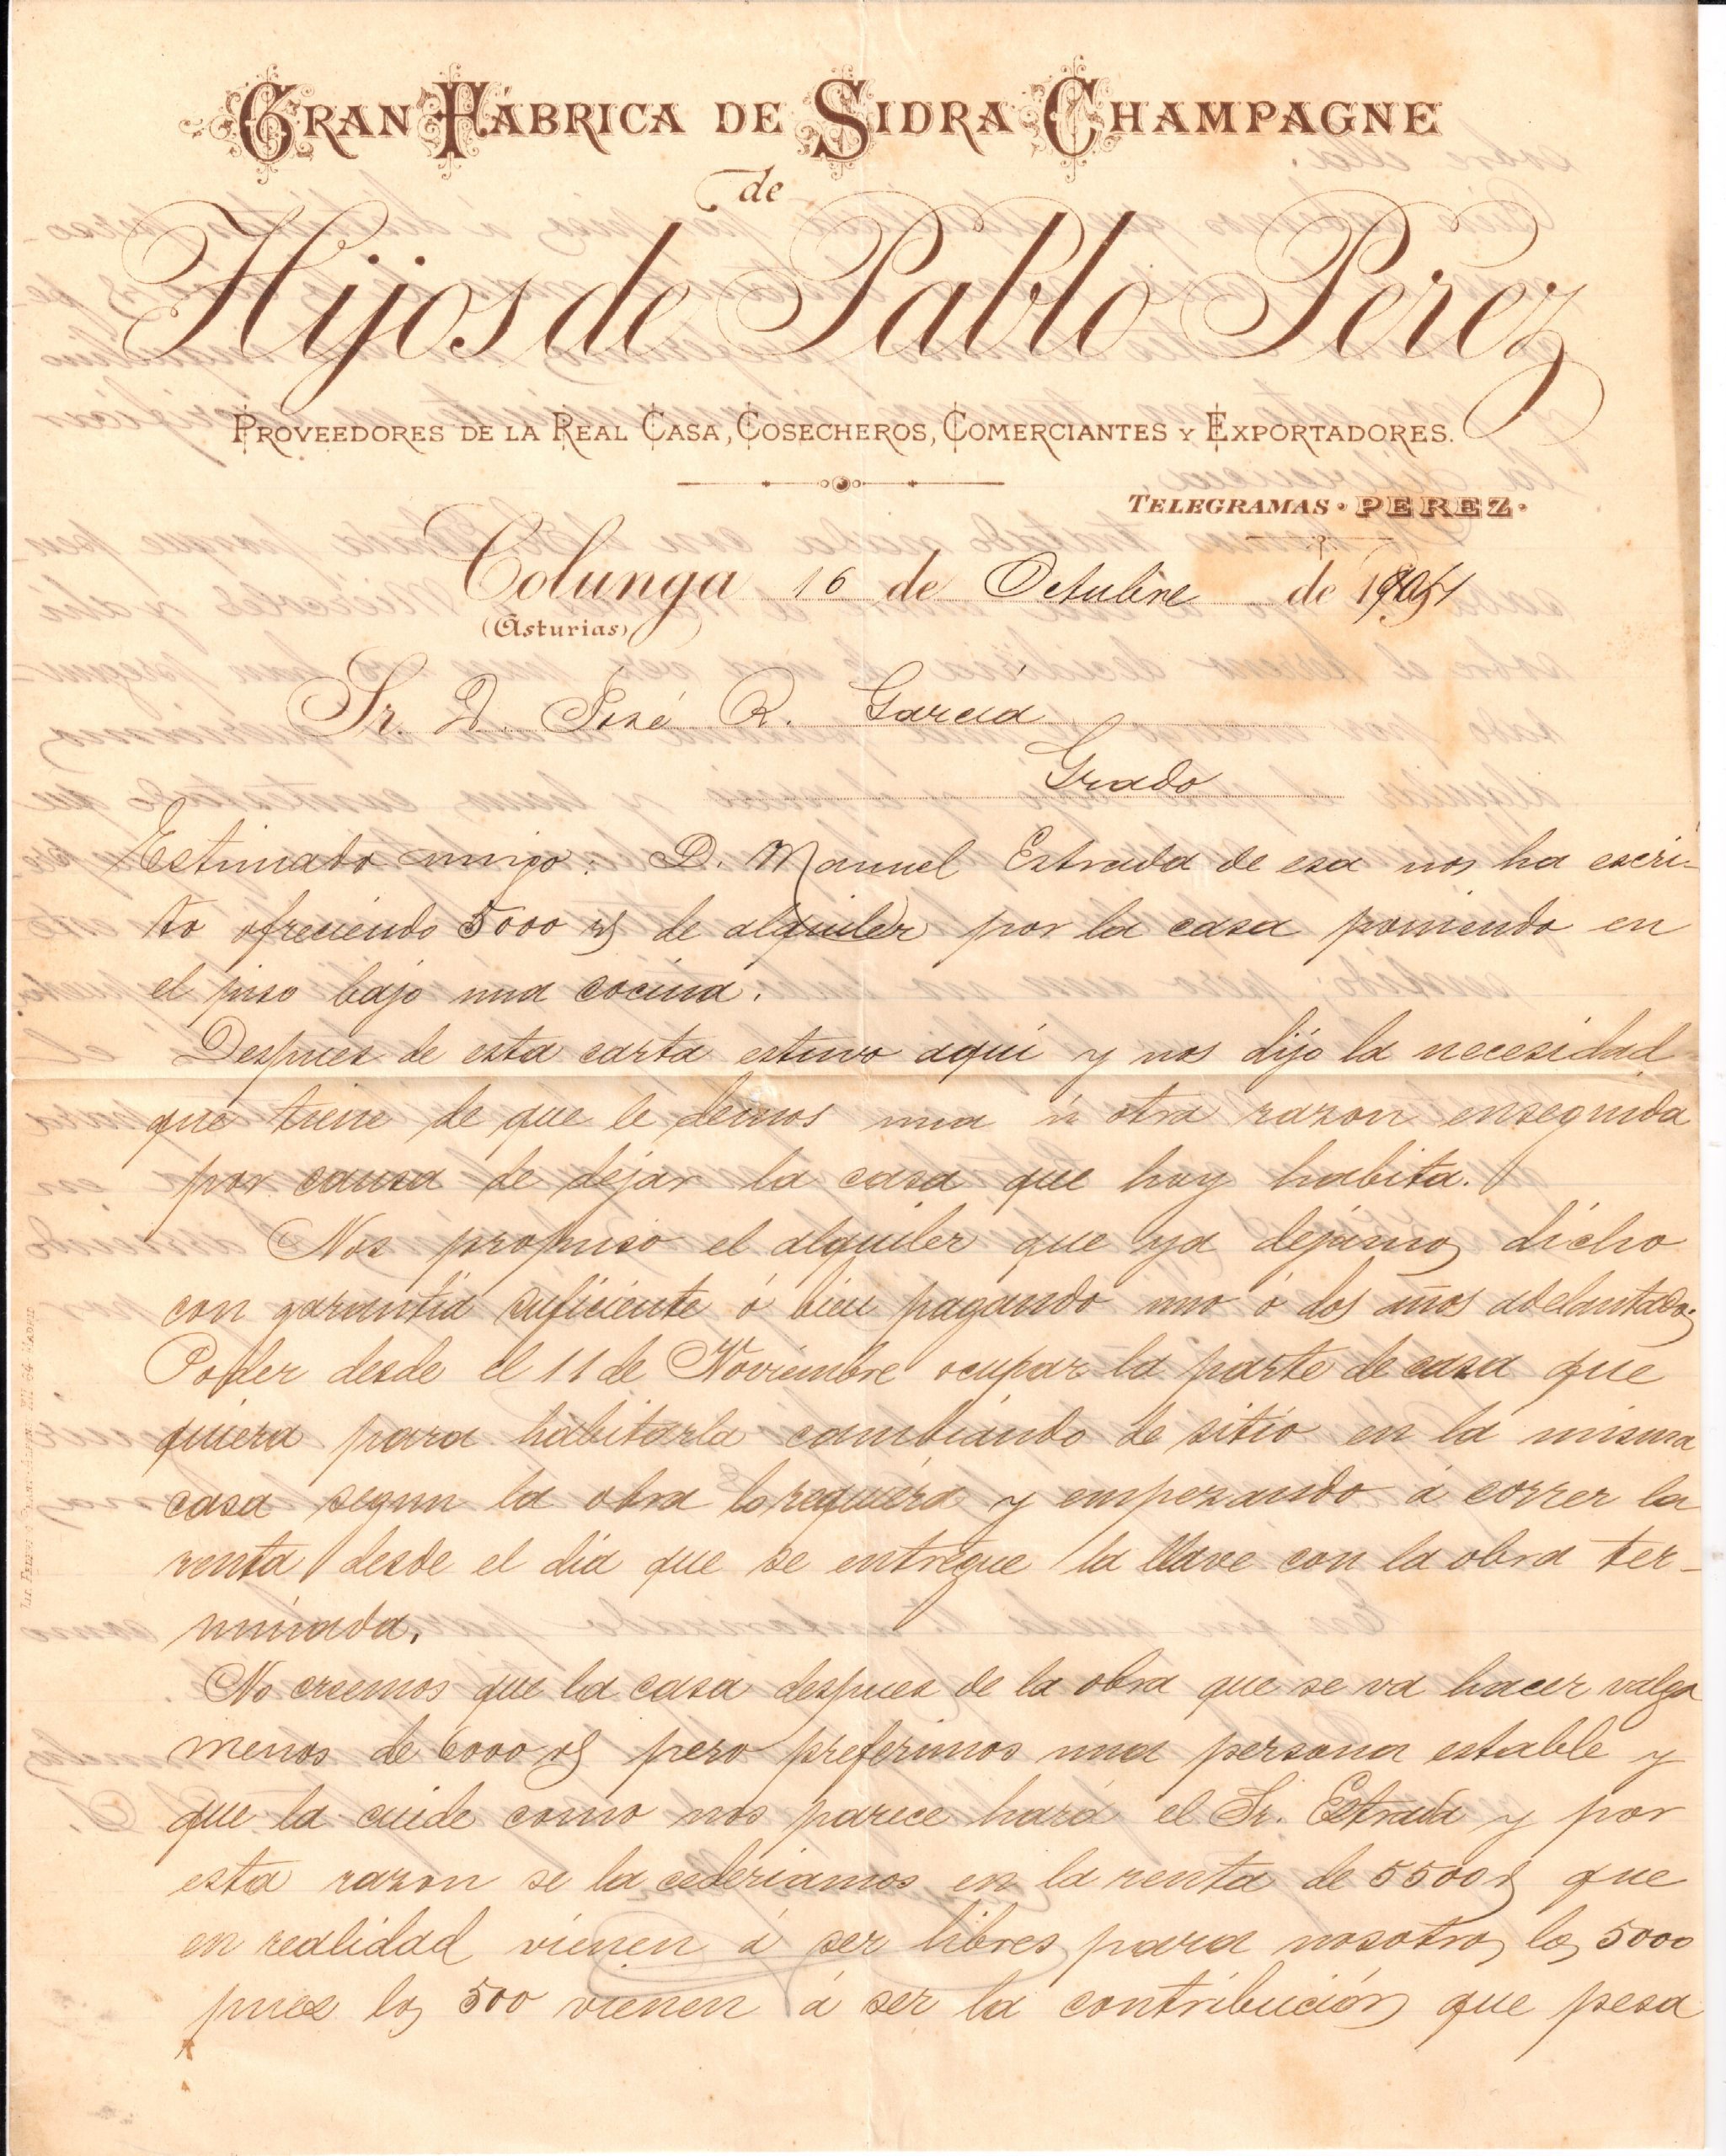 GRAN FÁBRICA DE SIDRA CHAMPAGNE
de
Hijos de Pablo Perez
PROVEEDORES DE LA REAL CASA, COSECHEROS, COMERCIANTES Y EXPORTADORES.
TELEGRAMAS • PEREZ •
Colunga 16 de Octubre de 1
(Asturias)
Sr. D. José R. García
Grado
Estimado amigo: D. Manuel Estrada de esa nos ha escri-
to ofreciendo 5000 rs de alquiler por la casa poniendo en
el piso bajo una cocina.
Despues de esta carta estuvo aquí y nos dijo la necesidad
que tiene de que le demos una ú otra razon enseguida
por causa de dejar la casa que hoy habita.
Nos propuso el alquiler que ya dejamos dicho
con garantía suficiente ó bien pagando uno ó dos años adelantados
Poder desde el 11 de Noviembre ocupar la parte de casa que
quiera para habitarla cambiando de sitio en la misma
casa segun la obra lo requiera y empezando á correr la
renta desde el día que se entregue la llave con la obra ter-
minada.
No creemos que la casa despues de la obra que se va hacer valga
menos de 6000 rs pero preferimos una persona estable y
que la cuide como nos parece hará el Sr. Estrada y por
esta razon se la cederiamos en la renta de 5500 rs que
en realidad vienen á ser libres para nosotros los 5000
pues los 500 vienen á ser la contribución que pesa